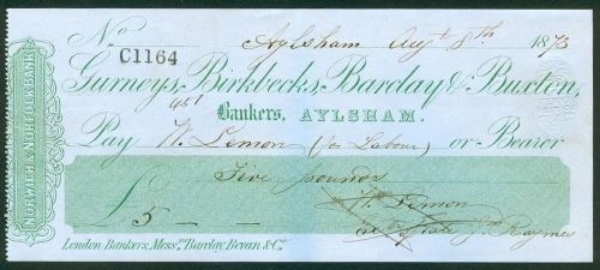 NORWICH & NORFOLK BANK
No C1164 Aylsham Augt 8th 1873
Gurneys, Birkbecks, Barclay & Buxton,
Bankers, AYLSHAM.
Pay W. Lemon (for Labour) or Bearer
Five pounds
£5 — — Wm Lemon
J. Raymes
London Bankers, Messrs Barclay, Bevan & Co